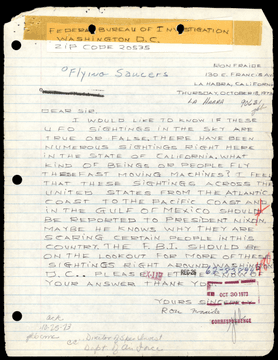 FEDERAL BUREAU OF INVESTIGATION
WASHINGTON D.C.
ZIP CODE 20535
"Flying Saucers
LA HABRA, CALIFORNIA
THURSDAY, OCTOBER 18, 1973
La Habra 90631
DEAR SIR.
I WOULD LIKE TO KNOW IF THESE
UFO SIGHTINGS IN THE SKY ARE
TRUE OR FALSE, THERE HAVE BEEN
NUMEROUS SIGHTINGS RIGHT HERE
IN THE STATE OF CALIFORNIA. WHAT
KIND OF BEINGS OR PEOPLE FLY
THESE FAST MOVING MACHINES? I FEEL
THAT THESE SIGHTINGS ACROSS THE
UNITED STATES FROM THE ATLANTIC
COAST TO THE PACIFIC COAST AND
IN THE GULF OF MEXICO SHOULD
BE REPORTED TO PRESIDENT NIXON.
MAYBE HE KNOWS WHY THEY ARE
SCARING CERTAIN PEOPLE IN THIS
COUNTRY. THE F.B.I. SHOULD BE
ON THE LOOKOUT FOR MORE OF THESE
SIGHTINGS RIGHT AROUND WASHING
D.C.. PLEASE
YOUR ANSWER THANK YOU
YOURS
Ron
OCT 30 1973
CORRESPONDENCE